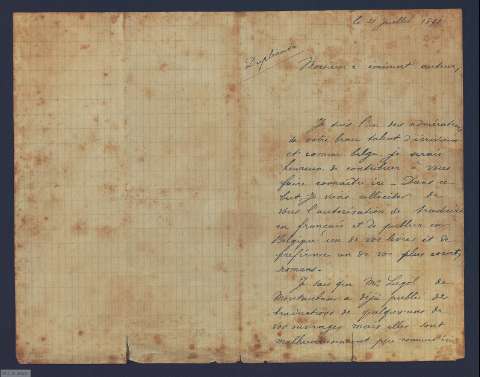 le 21 juillet 1891
Duplicando
Monsieur & éminent auteur,
Je suis l'un des admirateurs
de votre beau talent d'écrivain
et comme belge je serais
heureux de contribuer à vous
faire connaître ici - Dans ce
but je vous solliciter de
vous l'autorisation de traduire
en français et de publier en
Belgique un de vos livres et de
préférence un de vos plus courts
romans.
Je sais que Mr de
Montauban a déjà publié de
traductions de quelques uns de
vos ouvrages mais elles sont
malheureusement peu